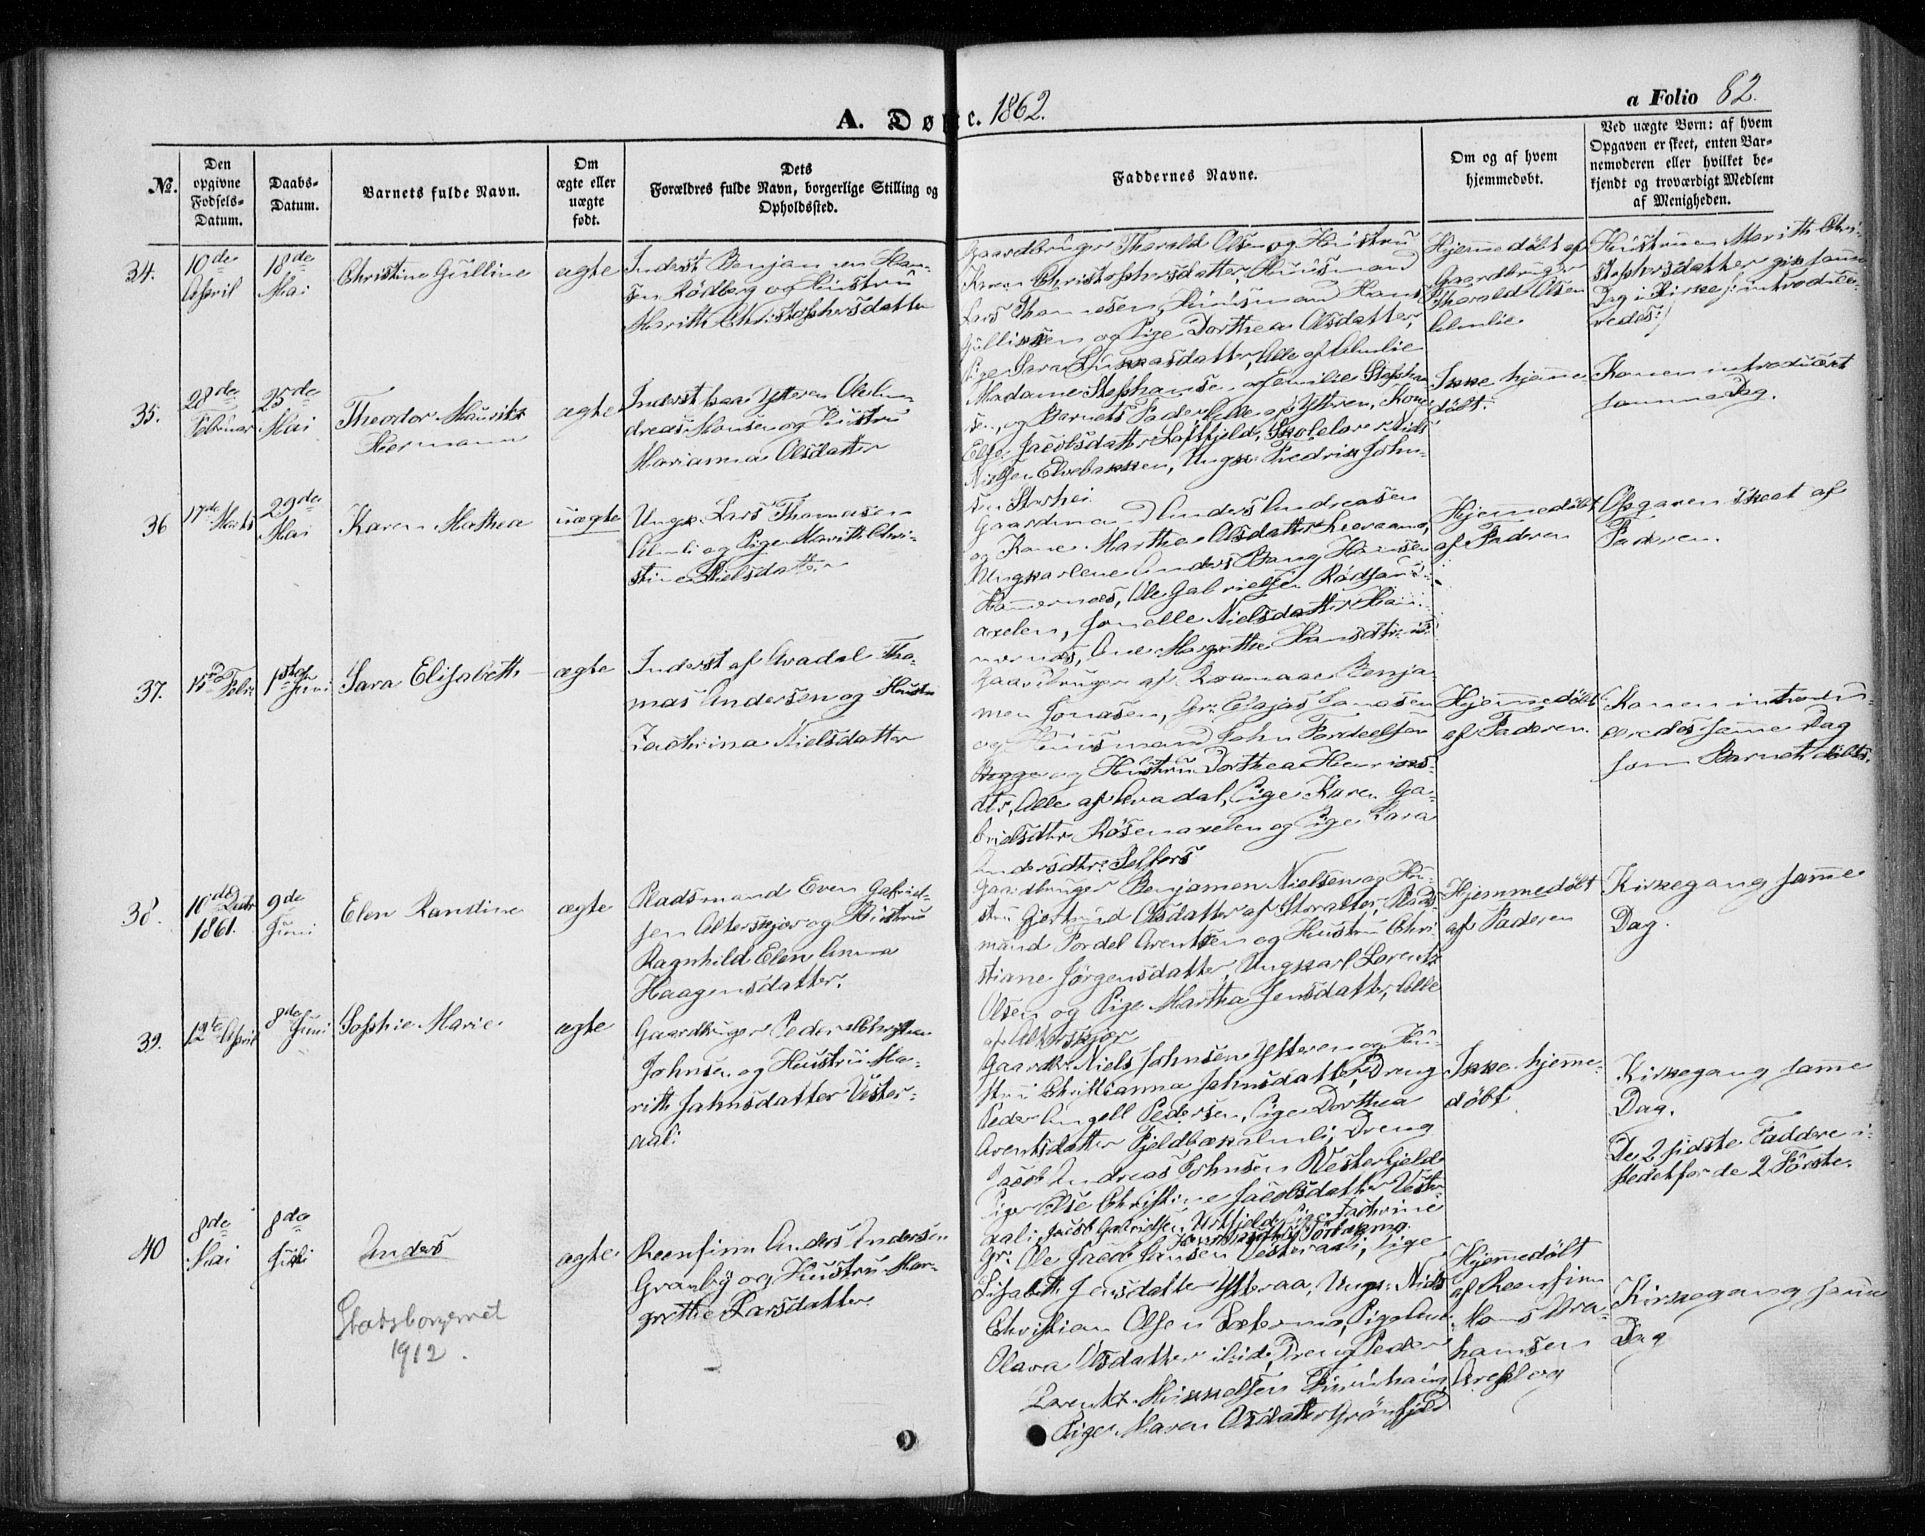 A. Døbte. 1862.
a Folio 82.
No.
Den opgivne Fødsels-Datum.
Daabs-Datum.
Barnets fulde Navn.
Om ægte eller uægte født.
Dets Forældres fulde Navn, borgerlige Stilling og Opholdssted.
Faddernes Navne.
Om og af hvem hjemmedøbt.
Ved uægte Børn: af hvem Opgaven er skeet, enten Barnemoderen eller hvilket bekjendt og troværdigt Medlem af Menigheden.
34.
10de April
18de Mai
Christine Gulline
ægte
Inderst Benjamen Han-
sen Rödberg og Hustru
Marith Christophersdatter
Gaardbruger Thorald Olsen og Hustru
Karen Christophersdatter, Huusmand
Lars Thomesen, Huusmand Hans
og Pige Dorthea Olsdatter,
Pige Sara Lukasdatter, Alle af Almlie
Hjemmedöbt af
Gaardbruger
Thorald Olsen
Almlie
Hustruen Marith Chri-
stophersdatter gik samme
Dag i Kirke (: introduce-
redes:)
35.
28de Februar
25de Mai
Theodor Mauritz
Hermann
ægte
Inderst Ytteren Ole An-
dreas Hansen og Hustru
Marianna Olsdatter
Madame Stephansen, Emilie Stephan-
sen, og Barnets Fader Alle af Ytteren, Kone
Else Jacobsdatter Løftfjeld, Skolelærer Niels
Nielsen Elvebakken, Ungk. Fredrik John-
sen Storhei
Ikke hjemme-
döbt.
Konen introduceret
samme Dag.
36
17de Marts
29de Mai
Karen Mathea
uægte
Ungk. Lars Thomesen
Almli og Pige Marith Chri-
stine Nielsdatter
Gaardmand Anders Andreasen
og Kone Marthea Olsdatter
Ungkarlene Anders Bang Hansen
Hammernæs, Ole Gabrielsen
Jonelle Nielsdatter
Ane Margrethe Hansdtr.
Hjemmedöbt
af Faderen
Opgaven skeet af
Faderen.
37.
15de Febr
1ste Juni
Sara Elisabeth
ægte
Inderst af Avadal Tho-
mas Andersen og Hustru
Zachrina Nielsdatter
Gaardbruger af Benja-
men Jonasen, Gr. Esajas Jonasen
og Huusmand John Fordelsen
Hustru Dorthea Henriks-
dtr, Alle af Avadal, Pige Karen Ga-
brielsdtr. og Pige Sara
Andersdtr. Selfors
Hjemmedöbt
af Faderen.
Konen introdu-
ceredes samme Dag
som Barnet döbtes.
38.
10de Decbr 1861.
9de Juni
Elen Randine
ægte
Pladsmand Even Gabriel-
sen Alterskjær og Hustru
Ragnhild Elen Anna
Haagensdatter.
Gaardbruger Benjamen Nielsen og Hu-
stru Gjertrud Olsdatter af Plads-
mand Fordel Arentsen og Hustru Chri-
stiane Jörgensdatter, Ungkarl Lorentz
Olsen og Pige Martha Jensdatter, Alle
af Alterskjær
Hjemmedöbt
af Faderen
Kirkegang samme
Dag.
39.
12te April
8de Juni
Sophie Marie
ægte
Gaardbruger Peder Christian
Johnsen og Hustru Ma-
rith Jahnsdatter Vester-
aali
Gaardbr. Niels Johnsen Ytteren og Hu-
stru Christianna Johnsdatter, Dreng
Peder Angell Pedersen, Pige Dorthea
Arentsdatter Dreng
Jacob Andreas Johnsen
Pige Else Christine Jacobsdatter Vester-
aali, Jacob Gabrielsen Pige Zachrine
Ikke hjemme-
döbt
Kirkegang samme
Dag.
De 2 sidste Faddere i-
stedetfor de 2 Første.
40
8de Mai
8de Juli
Anders
ægte
Reenfinn Anders Andersen
Grønby og Hustru Mar-
grethe Larsdatter
Gr. Ole Jacob Hansen Vesteraali, Pige
Elisabeth Jensdatter Ytteraa, Ungk. Niels
Christian Olsen Pige Ane
Olava Olsdatter ibid., Dreng Peder
Lorentz Mikkelsen
Pige Maren Olsdatter Grönfjeld
Hjemmedöbt
af Reenfinn
Mons Abra-
hamsen
Kirkegang samme
Dag
Statsborgerret
1912.